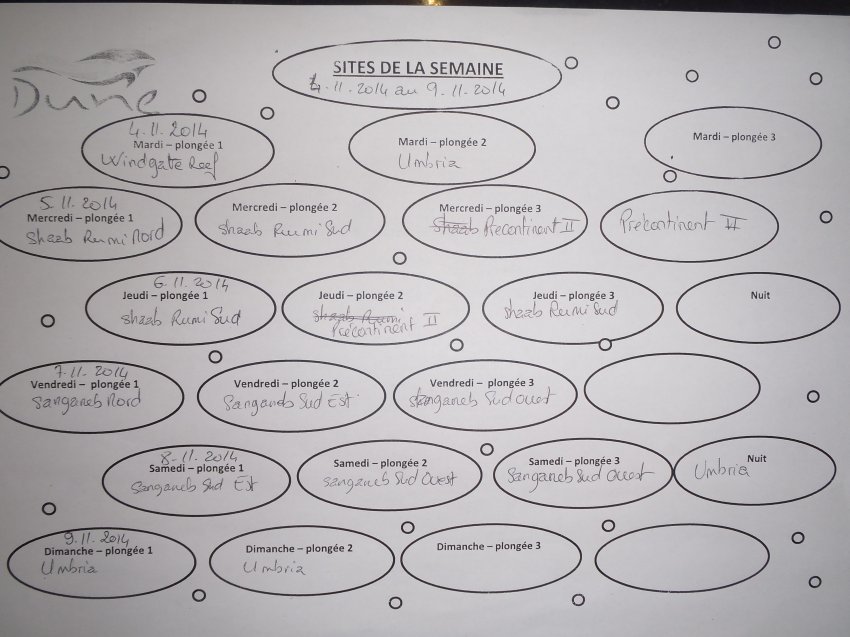 Dune
SITES DE LA SEMAINE
4.11.2014 au 9.11.2014
4.11.2014
Mardi – plongée 1
Windgate Reef
Mardi – plongée 2
Umbria
Mardi – plongée 3
5.11.2014
Mercredi – plongée 1
Shaab Rumi Nord
Mercredi – plongée 2
Shaab Rumi Sud
Mercredi – plongée 3
Shaab Precontinent II
Précontinent II
6.11.2014
Jeudi – plongée 1
Shaab Rumi Sud
Jeudi – plongée 2
Shaab Rumi
Précontinent II
Jeudi – plongée 3
Shaab Rumi Sud
Nuit
7.11.2014
Vendredi – plongée 1
Sanganeb Nord
Vendredi – plongée 2
Sanganeb Sud Est
Vendredi – plongée 3
Sanganeb Sud Ouest
8.11.2014
Samedi – plongée 1
Sanganeb Sud Est
Samedi – plongée 2
Sanganeb Sud Ouest
Samedi – plongée 3
Sanganeb Sud Ouest
Nuit
Umbria
9.11.2014
Dimanche – plongée 1
Umbria
Dimanche – plongée 2
Umbria
Dimanche – plongée 3